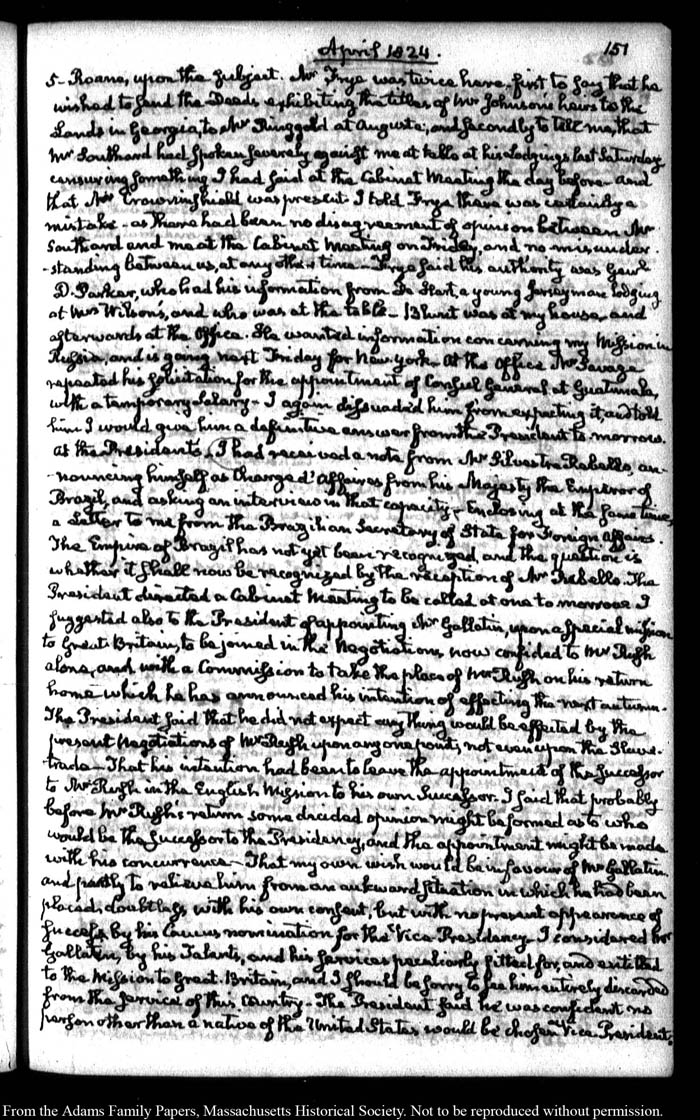 April 1824.
151
5- Roane, upon the subject. Mr Frye was twice here- first to say that he
wished to send the Deeds exhibiting the titles of Mr Johnson's heirs to the
Lands in Georgia, to Mr Ringgold at Augusta; and secondly to tell me, that
Mr Southard had spoken severely against me at table at his Lodgings last Saturday
censuring something I had said at the Cabinet Meeting the day before- and
that Mr Crowninshield was present- I told Frye there was certainly a
mistake- as there had been no disagreement of opinion between Mr
Southard and me at the Cabinet Meeting on Friday, and no misunder-
-standing between us, at any other time- Frye said his authority was Genl
D. Parker, who had his information from De Hart, a young Jerseyman lodging
at Mrs Wilson's, and who was at the table- Blunt was at my house, and
afterwards at the Office. He wanted information concerning my Mission in
Russia, and is going next Friday for New-York. At the Office Mr Savage
repeated his solicitation for the appointment of Consul General at Guatemala,
with a temporary Salary- I again dissuaded him from expecting it, and told
him I would give him a definitive answer from the President to morrow.
At the President's, I had received a note from Mr Silvestre Rebello, an-
-nouncing himself as Chargé d'Affaires from his Majesty the Emperor of
Brazil, and asking an interview in that capacity- Enclosing at the same time,
a Letter to me from the Brazilian Secretary of State for Foreign Affairs.
The Empire of Brazil has not yet been recognized, and the question is
whether it shall now be recognized by the reception of Mr Rebello. The
President directed a Cabinet Meeting to be called at one to morrow. I
suggested also to the President of appointing Mr Gallatin, upon a special mission
to Great-Britain, to be joined in the Negotiations now confided to Mr Rush
alone, and with a Commission to take the place of Mr Rush on his return
home which he has announced his intention of effecting the next autumn.
The President said that he did not expect any thing would be effected by the
present Negotiations of Mr Rush upon any one point; not even upon the Slave-
trade- That his intention had been to leave the appointment of the Successor
to Mr Rush in the English Mission to his own Successor. I said that probably
before Mr Rush's return some decided opinion might be formed as to who
would be the Successor to the Presidency, and the appointment might be made
with his concurrence- That my own wish would be in favour of Mr Gallatin.
and partly to relieve him from an awkward situation in which he had been
placed, doubtless with his own consent, but with no present appearance of
success by his Caucus nomination for the Vice Presidency- I considered Mr
Gallatin, by his Talents, and his services peculiarly fitted for, and entitled
to the Mission to Great-Britain, and I should be sorry to see him entirely discarded
from the service of this Country- The President said he was confident no
person other than a native of the United States would be chosen Vice-President.
From the Adams Family Papers, Massachusetts Historical Society. Not to be reproduced without permission.